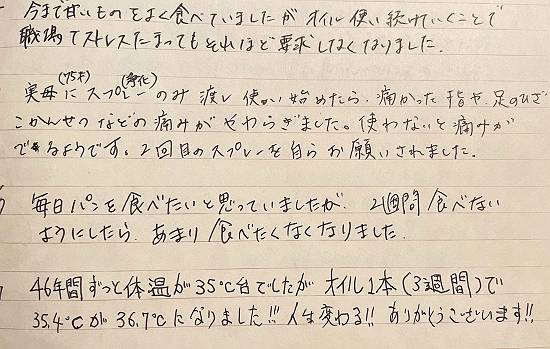 今まで甘いものをよく食べていましたがオイル使い続けていくことで
職場でストレスたまってもそれほど要求しなくなりました.
実母(75才)にスプレー(浄化)のみ渡し使い始めたら、痛かった指や足のひざ
こかんせつなどの痛みがやわらぎました。使わないと痛みが
でるようです。2回目のスプレーを自らお願いされました.
毎日パンを食べたいと思っていましたが、2週間食べない
ようにしたら、あまり食べたくなくなりました.
46年間ずっと体温が35℃台でしたがオイル1本(3週間)で
35.4℃が36.7℃になりました!!! 人生変わる!! ありがとうございます!!